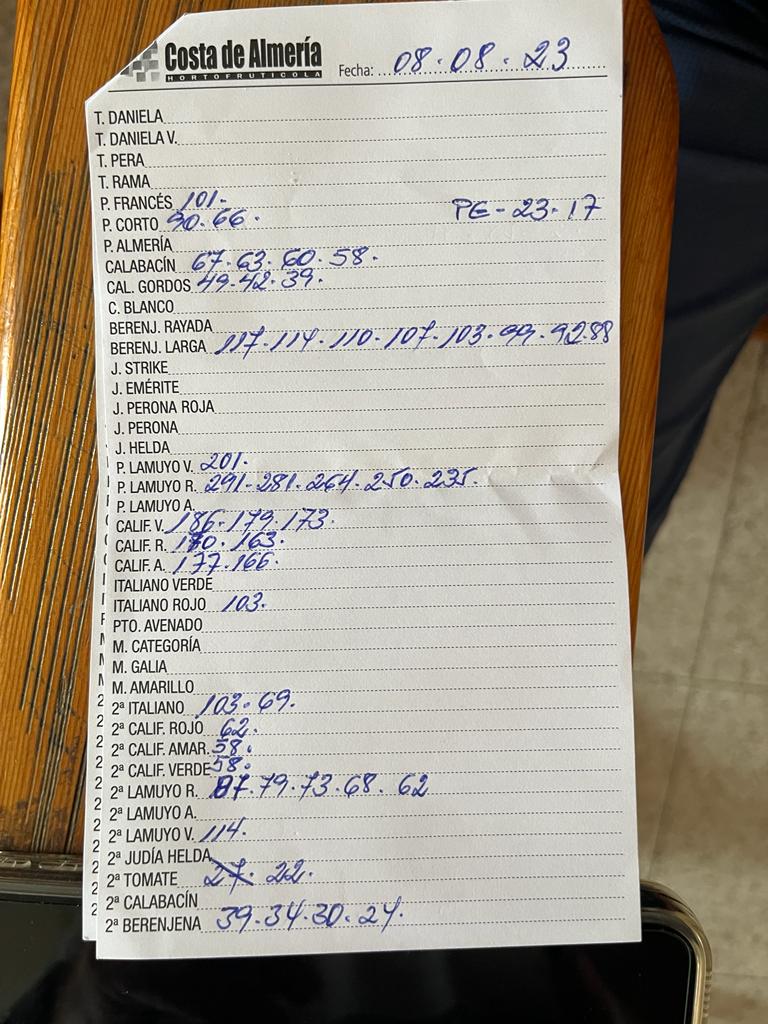 Costa de Almería
HORTOFRUTICOLA
Fecha: 08.08.23
T. DANIELA
T. DANIELA V.
T. PERA
T. RAMA
P. FRANCÉS 101.
P. CORTO 90.66. PE-23.17
P. ALMERÍA
CALABACÍN 67.63.60.58.
CAL. GORDOS 49.42.39.
C. BLANCO
BERENJ. RAYADA
BERENJ. LARGA 117.114.110.107.103.99.92.88
J. STRIKE
J. EMÉRITE
J. PERONA ROJA
J. PERONA
J. HELDA
P. LAMUYO V. 201.
P. LAMUYO R. 291.281.264.250.235.
P. LAMUYO A.
CALIF. V. 186.179.173.
CALIF. R. 170.163.
CALIF. A. 177.166.
ITALIANO VERDE
ITALIANO ROJO 103.
PTO. AVENADO
M. CATEGORÍA
M. GALIA
M. AMARILLO
2ª ITALIANO 103.69.
2ª CALIF. ROJO 62.
2ª CALIF. AMAR. 58.
2ª CALIF. VERDE 58.
2ª LAMUYO R. 87.79.73.68.62
2ª LAMUYO A.
2ª LAMUYO V. 114.
2ª JUDÍA HELDA
2ª TOMATE 27. 22.
2ª CALABACÍN
2ª BERENJENA 39.34.30.24.